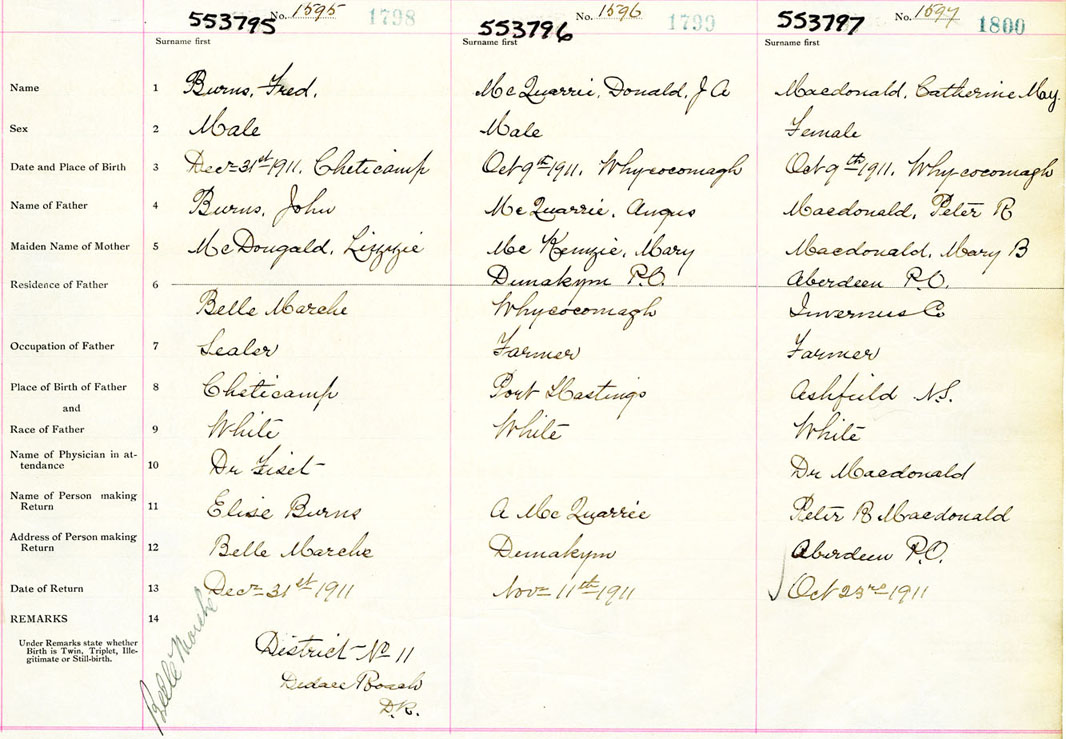 553795 No. 1595 1798 553796 No. 1596 1799 553797 No. 1597 1800
Surname first Surname first Surname first
Name 1 Burns, Fred, McQuarrie, Donald, J A Macdonald, Catherine May.
Sex 2 Male Male Female
Date and Place of Birth 3 Decr 31st 1911, Cheticamp Oct 9th 1911, Whycocomagh Oct 9th 1911, Whycocomagh
Name of Father 4 Burns, John McQuarrie, Angus Macdonald, Peter R
Maiden Name of Mother 5 McDougald, Lizzie McKenzie, Mary Macdonald, Mary B
Dunakym P.O. Aberdeen P.O.
Residence of Father 6 Belle Marche Whycocomagh Inverness Co
Occupation of Father 7 Sealer Farmer Farmer
Place of Birth of Father 8 Cheticamp Port Hastings Ashfield N.S.
and
Race of Father 9 White White White
Name of Physician in at-
tendance 10 Dr Fiset Dr Macdonald
Name of Person making
Return 11 Elise Burns A McQuarrie Peter R Macdonald
Address of Person making
Return 12 Belle Marche Dunakym Aberdeen P.O.
Date of Return 13 Decr 31st 1911 Novr 11th 1911 Oct 23rd 1911
REMARKS 14
Under Remarks state whether
Birth is Twin, Triplet, Ille-
gitimate or Still-birth.
Belle Marche
District No 11
Roach
D.R.